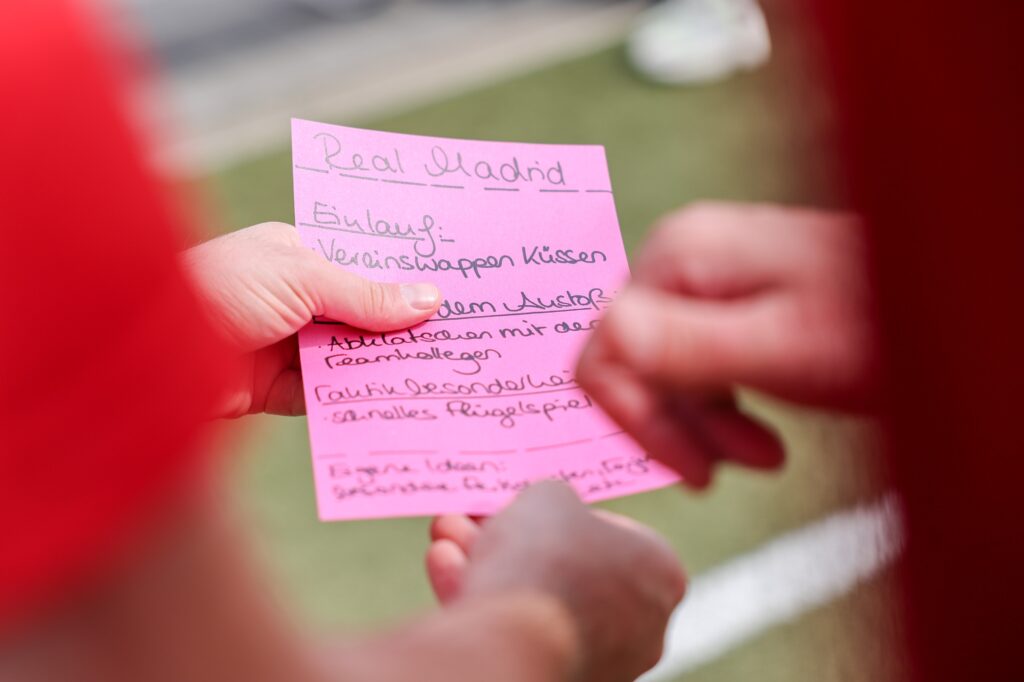 Real Madrid
Einlauf:
· Vereinswappen Küssen
dem Anstoß:
· Abklatschen mit den
Teamkollegen
Taktikbesonderhei
· schnelles Flügelspiel
Eigene Ideen:
besondere
etc.